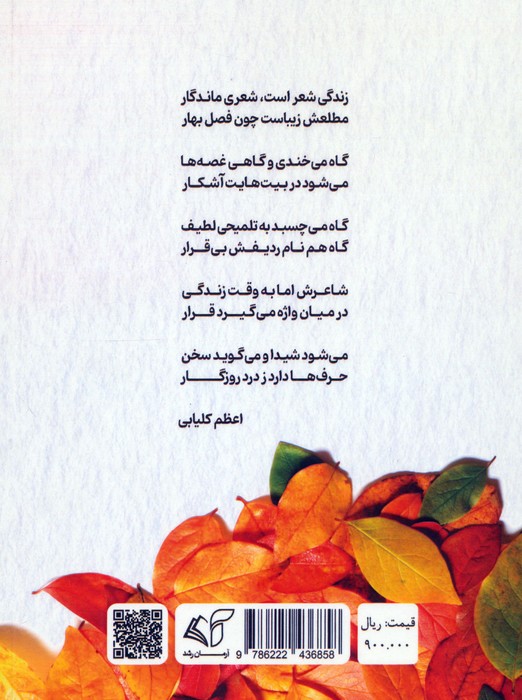 زندگی شعر است، شعری ماندگار
مطلعش زیباست چون فصل بهار
گاه می‌خندی و گاهی غصه‌ها
می‌شود در بیت‌هایت آشکار
گاه می‌چسبد به تلمیحی لطیف
گاه هم نام ردیفش بی‌قرار
شاعرش اما به وقت زندگی
در میان واژه می‌گیرد قرار
می‌شود شیدا و می‌گوید سخن
حرف‌ها دارد ز درد روزگار
اعظم کلیابی
قیمت: ریال
۹۰۰.۰۰۰
9 786222 436858
آرمان رشد